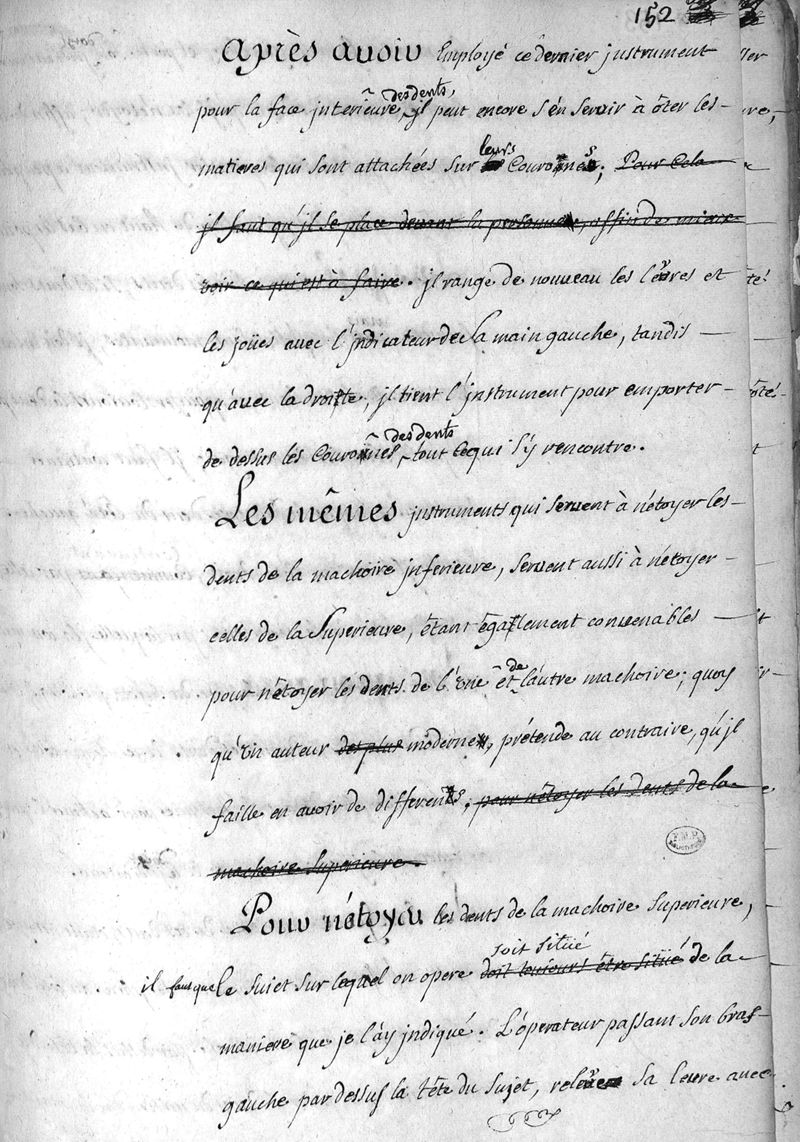 152
Après avoir Employé ce dernier jnstrument
pour la face jnterieure des dents, jl peut encore s'en servir à ôter les
matieres qui sont attachées sur leurs Couronnes; Pour Cela
jl faut qu'jl se place devant la personne, affin de mieux
voir ce qui est à faire. jl range de nouveau les levres et
les joües avec l'jndicateur de la main gauche, tandis
qu'avec la droitte, jl tient l'jnstrument pour emporter
de dessus les Couronnes des dents tout ce qui s'y rencontre.
Les mêmes jnstruments qui servent à nétoyer les
dents de la machoire jnferieure, servent aussi à nétoyer
celles de la Superieure, étant également convenables
pour nétoyer les dents de l'une et de l'autre machoire; quoy
qu'vn auteur des plus moderne, prétende au contraire, qu'jl
faille en avoir de differents, pour nétoyer les dents de la
machoire Superieure.
Pour nétoyer les dents de la machoire Superieure,
il faut que le sujet sur lequel on opere soit situé doit toujours être situé de la
maniere que je l'ay jndiqué. L'opérateur passant son bras
gauche par dessus la tête du sujet, releve sa levre avec